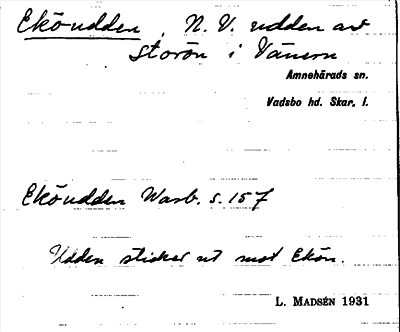 Ekóudden, N.V. udden av
Storön i Vänern
Amnehärads sn.
Vadsbo hd. Skar. l.
Eköudden Warb. s. 157
Udden sticker ut mot Ekön.
L. MADSÉN 1931